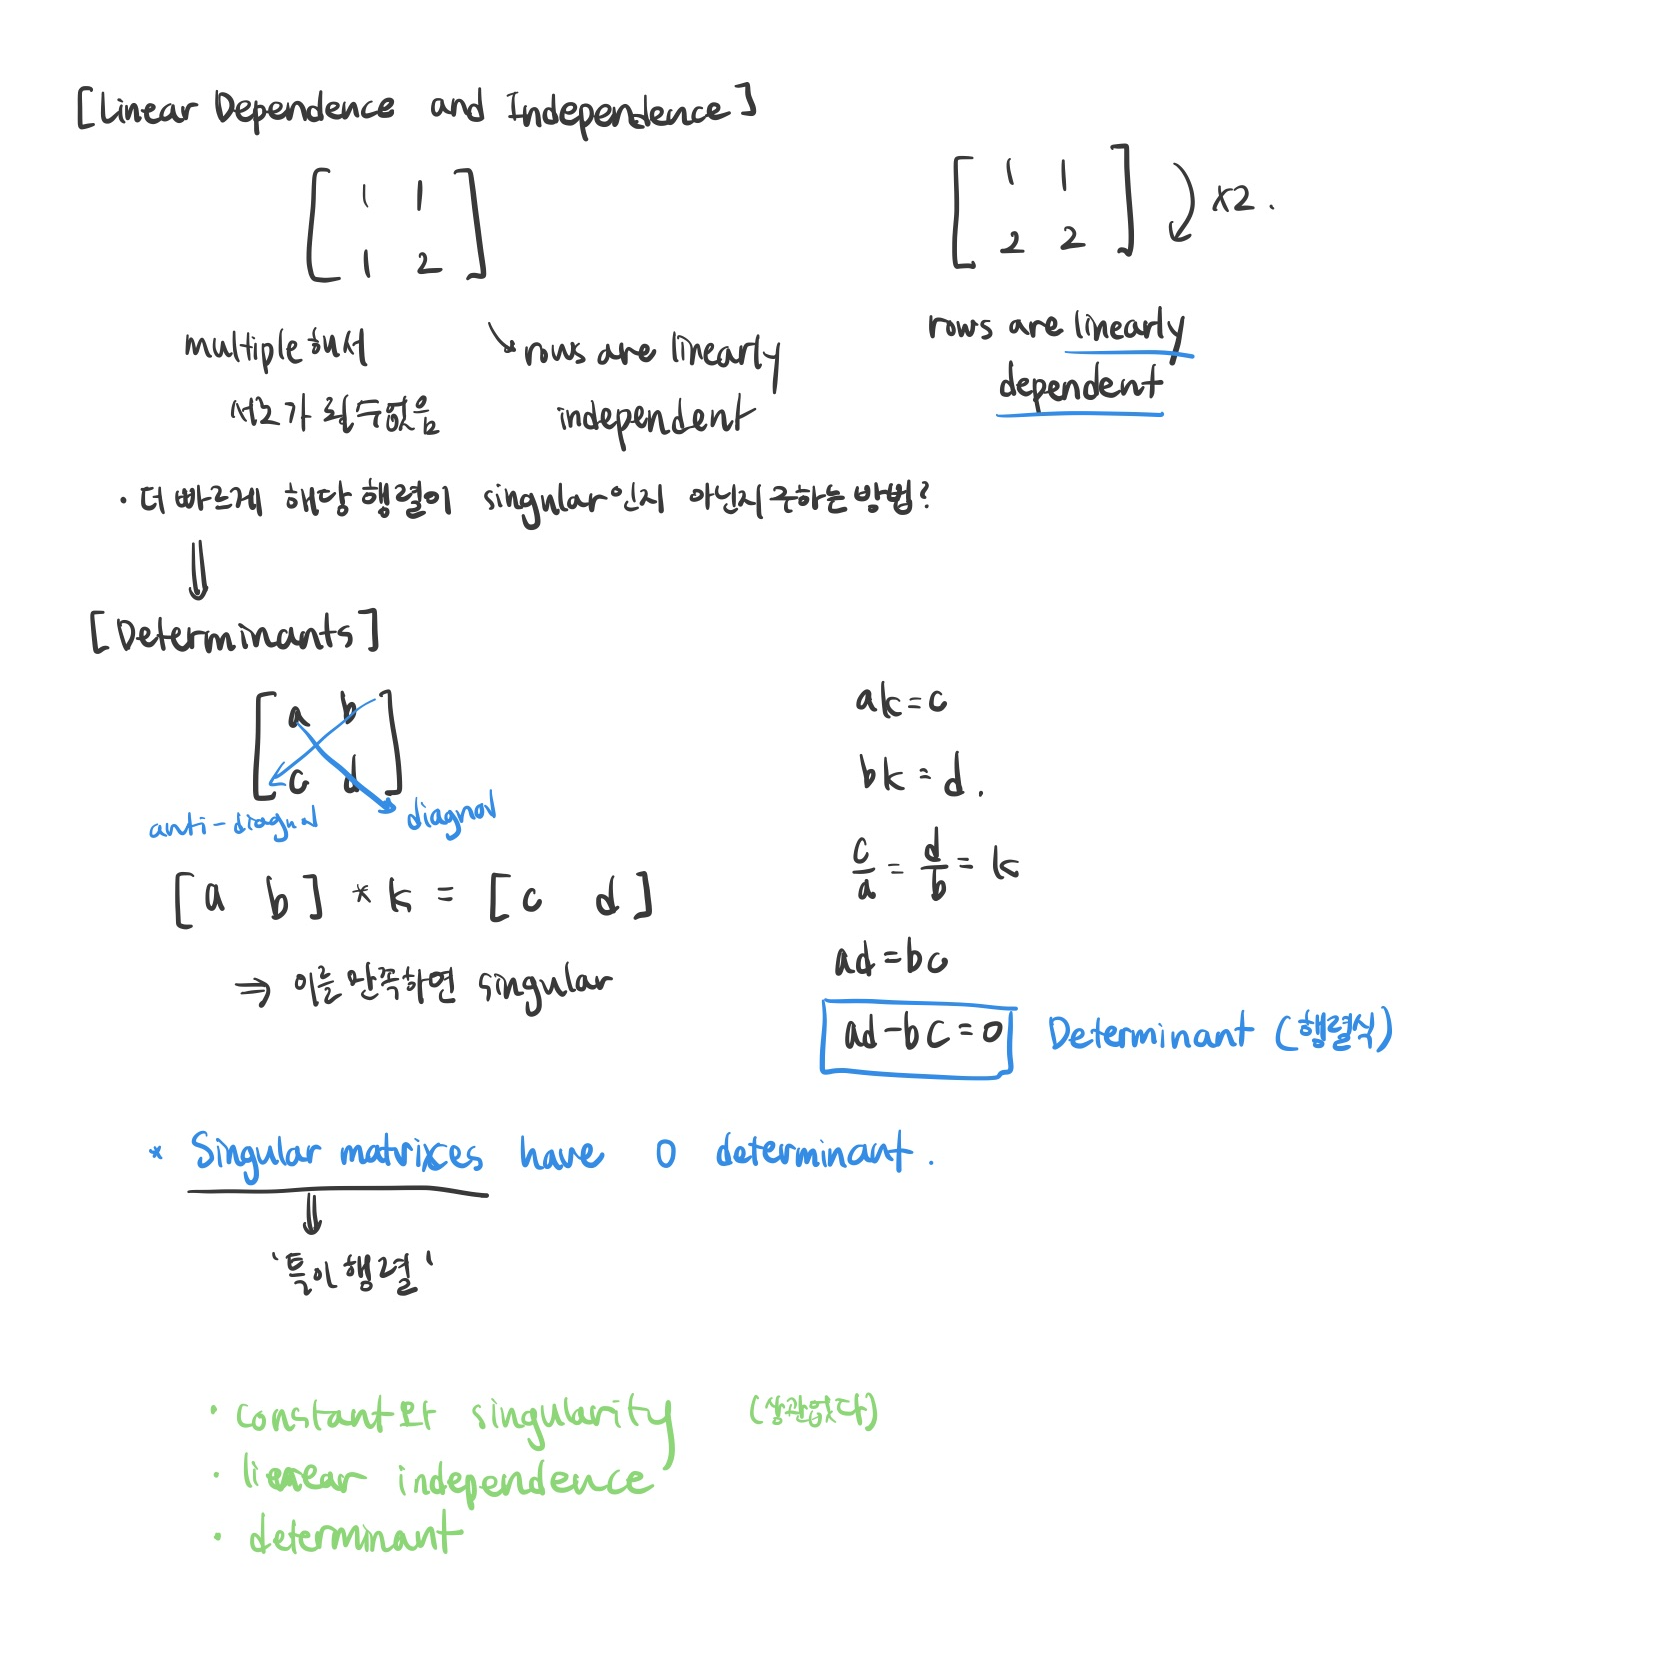 [Linear Dependence and Independence]
[ 1 1
1 2 ]
multiple해서
서로가 될수없음
rows are linearly
independent
[ 1 1
2 2 ] x2.
rows are linearly
dependent
· 더 빠르게 해당 행렬이 singular인지 아닌지 구하는 방법?
⇓
[Determinants]
[ a b
c d ]
anti-diagnal
diagnol
[a b] * k = [c d]
⇒ 이를 만족하면 singular
ak=c
bk=d.
c/a = d/b = k
ad=bc
ad-bc=0 Determinant (행렬식)
* Singular matrixces have 0 determinant.
⇓
'특이행렬'
· constant와 singularity (상관없다)
· linear independence
· determinant